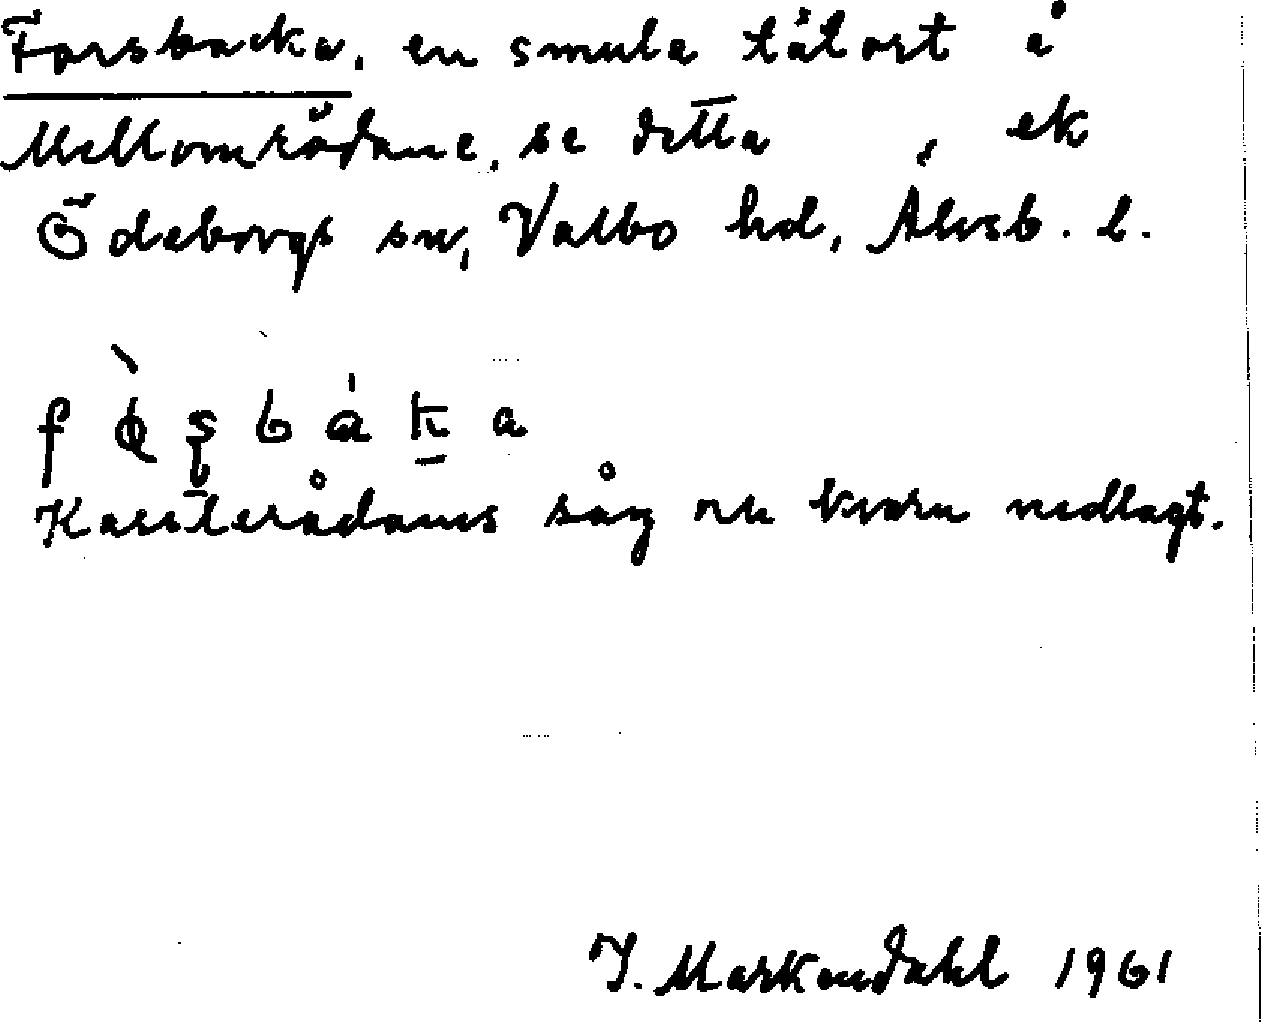 Forsbacka, en smula tätort å
Mellområdane, se detta, ek
Ödeborgs sn, Valbo hd, Älvsb. l.
Kasèlerådans såg och kvarn nedlagt.
J. Markendahl 1961